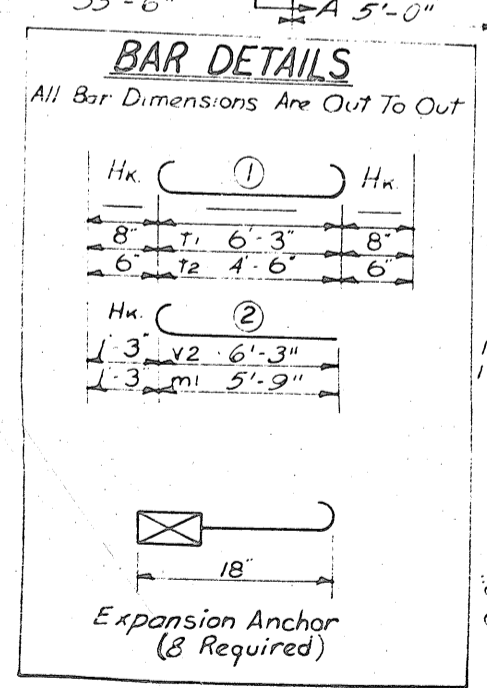 A 5'-0"
BAR DETAILS
All Bar Dimensions Are Out To Out
Hk. 1 Hk.
8" t1 6'-3" 8"
6" t2 4'-6" 6"
Hk. 2
1'-3" v2 6'-3"
1'-3" m1 5'-9"
18"
Expansion Anchor
(8 Required)